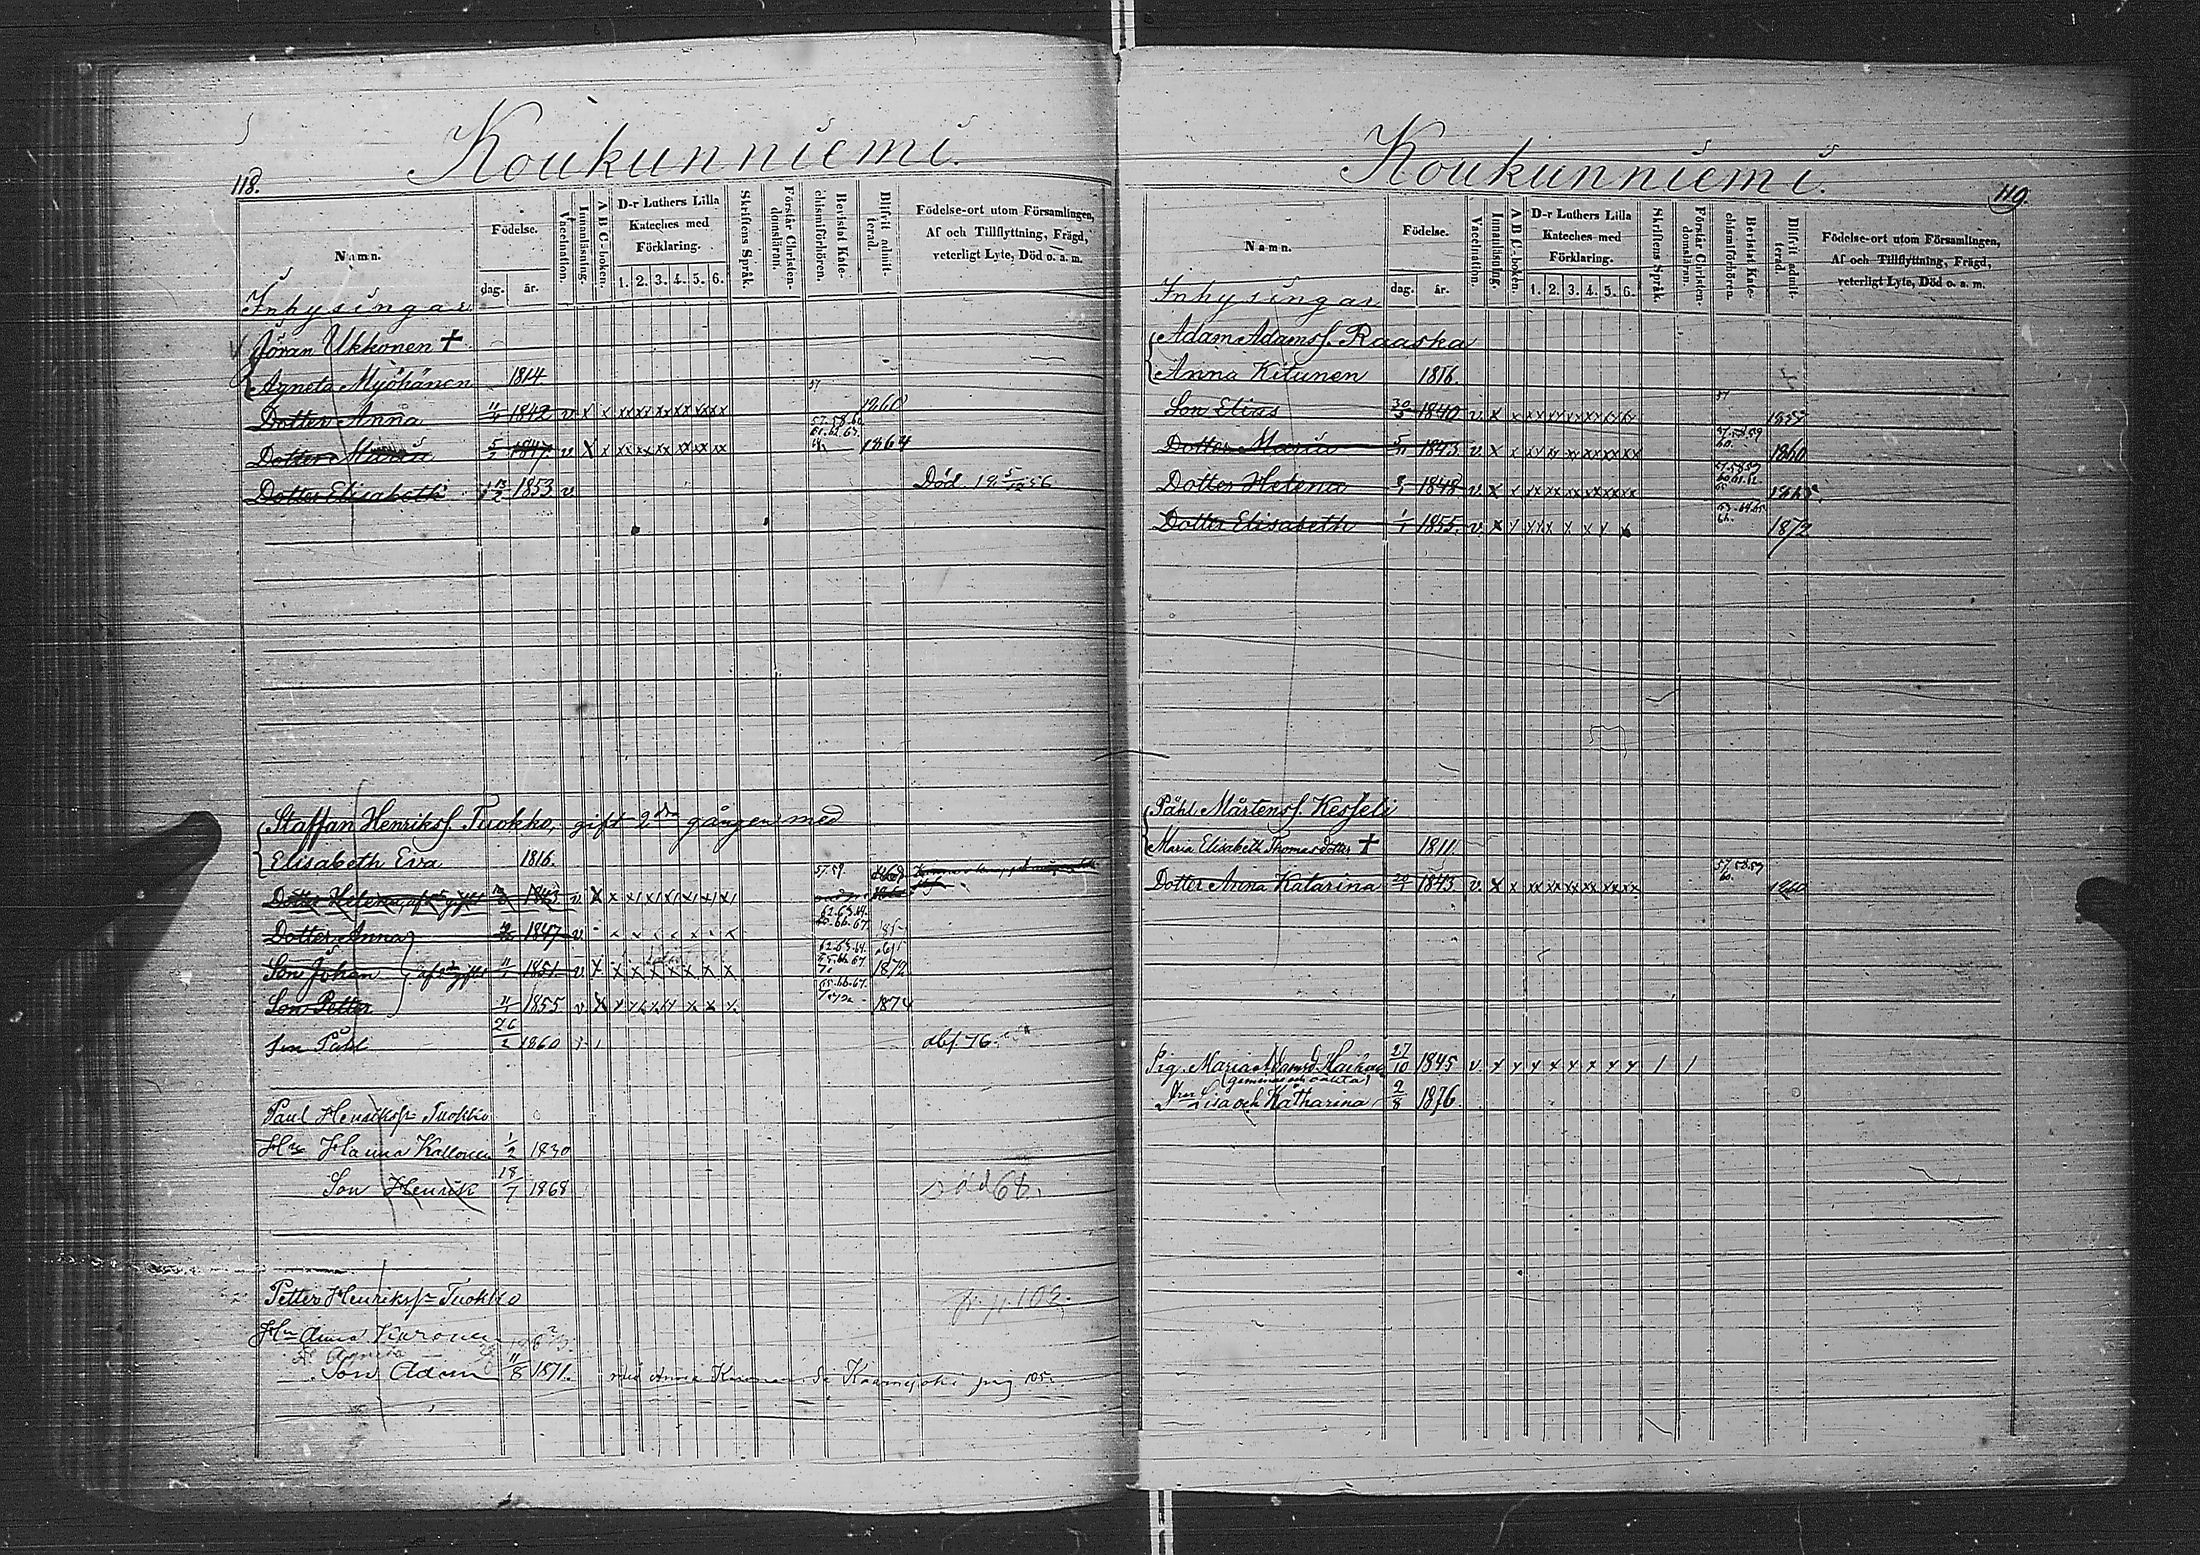 Koukunniemi.
118.
Namn.
Födelse.
dag.
år.
Vaccination.
Innanläsning.
A B C-boken.
D-r Luthers Lilla
Kateches med
Förklaring.
1. 2. 3. 4. 5. 6.
Skriftens Språk.
Förstår Christen-
domsläran.
Bevistat Kate-
chismiförhören.
Blifvit admit-
terad.
Födelse-ort utom Församlingen,
Af och Tillflyttning, Frägd,
veterligt Lyte, Död o. a. m.
Inhysingar
Jöran Ukkonen †
Agneta Myöhänen 1814
Dotter Anna 1842 v x x xx xx xx xx xx xx 57 1860
Dotter Maria 5/2 1847 v x x xx xx xx xx xx xx 57.58.60. 61.62.63. 1864
Dotter Elisabeth 1853 v Död 19 5/12 56
Staffan Henrikss. Tuokko, gift 2dra gången med
Elisabeth Eva 1816.
Dotter Helena, af 1843 v x x 57.59
Dotter Anna 1847 v 62.63.64. 65.66.67.
Son Johan af gifte 11/1 1851 v x x x x x x x x 62.63.64. 65.66.67 1872
Son Petter 11/1 1855 v x 65.66.67. 1874
Son Påhl 26/2 1860 abf. 76.
Paul Henrikss:n Tuokko
Hu Hanna Kallonen 1/2 1830
Son Henrik 18/7 1868 död 68.
Petter Henrikss:n Tuokko p. 102.
Hu Anna Kuronen
Agneta
Son Adam 11/8 1871.
Koukunniemi.
119.
Namn.
Födelse.
dag.
år.
Vaccination.
Innanläsning.
A B C-boken.
D-r Luthers Lilla
Kateches med
Förklaring.
1. 2. 3. 4. 5. 6.
Skriftens Språk.
Förstår Christen-
domsläran.
Bevistat Kate-
chismiförhören.
Blifvit admit-
terad.
Födelse-ort utom Församlingen,
Af och Tillflyttning, Frägd,
veterligt Lyte, Död o. a. m.
Inhysingar
Adam Adamss. Raaska
Anna Kitunen 1816.
Son Elias 30/3 1840 v x x 57 1857
Dotter Maria 5/11 1843 v x x xx xx xx xx xx xx 57.58.59 60. 1860
Dotter Helena 1848 v x x xx xx xx xx xx xx 57.58.59 60.61.62. 1865
Dotter Elisabeth 1/1 1855. v x 63.64.65 66. 1872
Påhl Mårtenss. Kesseli
Maria Elisabeth Thomasdotter † 1811
Dotter Anna Katarina 20/1 1843 v x x xx xx xx xx xx xx 57.58.59 60. 1860
Pig. Maria Adamsd. 27/10 1845 v x x x x x x x x 1 1
Lisa och Katharina 9/8 1876